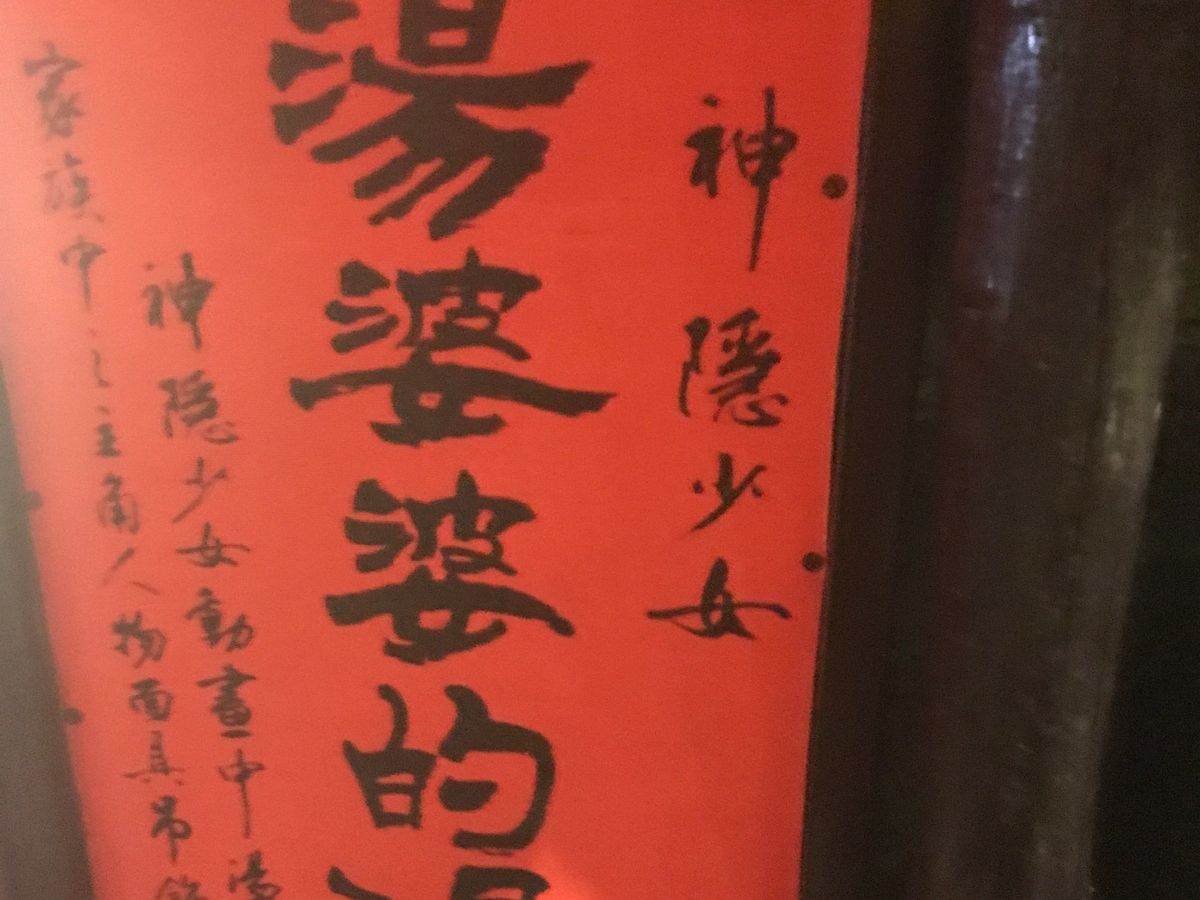 神隱少女
湯婆婆的湯
神隱少女動畫中湯
家族中之主角人物面具吊飾